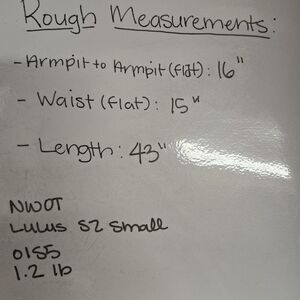 Rough Measurements:
- Armpit to Armpit (flat): 16"
- Waist (flat): 15"
- Length: 43"
NWOT
Lulus SZ Small
0155
1.2 lb